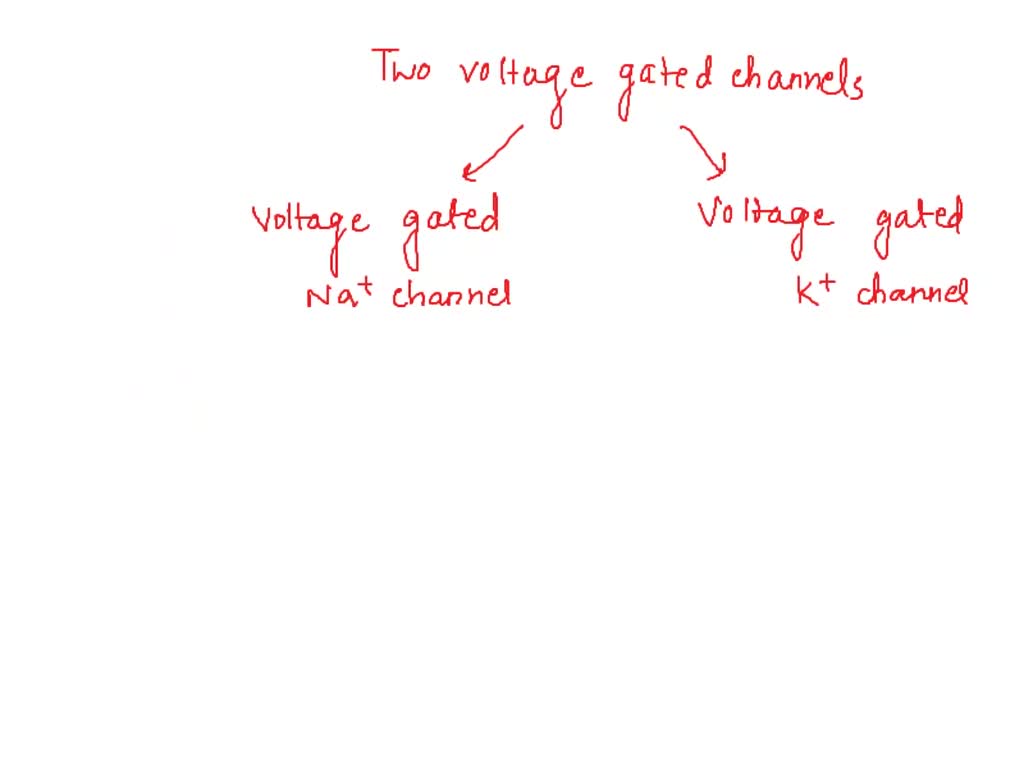 Two voltage gated channels
Voltage gated
Na+ channel
Voltage gated
K+ channel